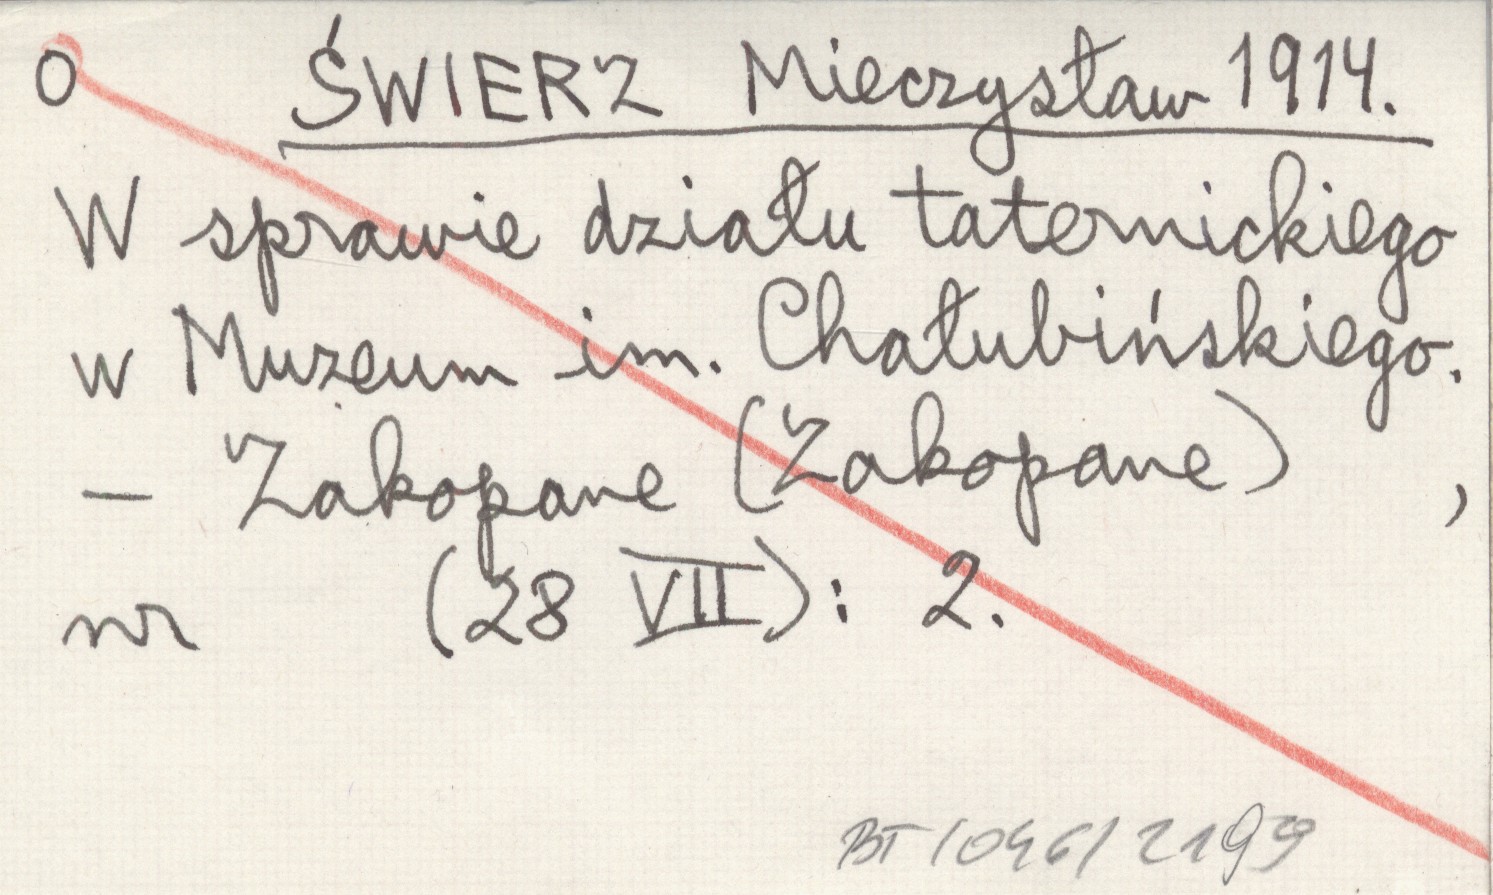 O ŚWIERZ Mieczysław 1914.
W sprawie działu taternickiego
w Muzeum im. Chałubińskiego.
— Zakopane (Zakopane) ,
nr (28 VII): 2.
BT/046/2199